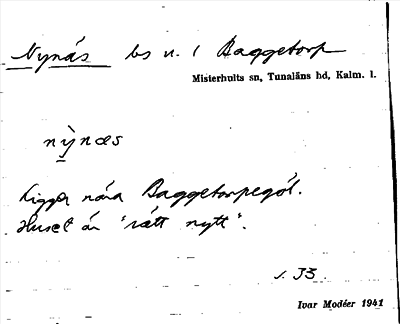 Nynäs bs u. / Baggetorp
Misterhults sn, Tunaläns hd, Kalm. l.
nỳnæs
Ligger nära Baggetorpegöl.
Huset är "rätt nytt".
s. 33.
Ivar Modéer 1941